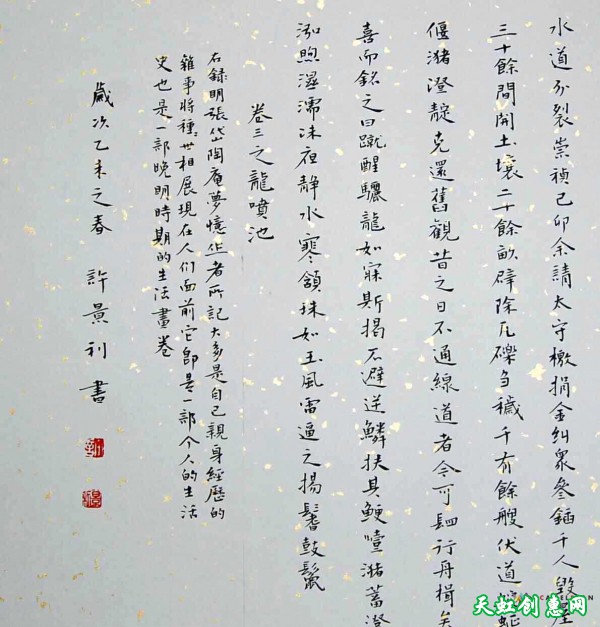 水道分裂崇禎己卯余請太守檄捐金糾眾畚鍤千人毀屋
三十餘間開土壤二十餘畝辟除瓦礫芻穢千有餘艘伏道蜿蜒
偃瀦澄靛克還舊觀昔之日不通線道者今可肆行舟楫矣
喜而銘之曰蹴醒驪龍如寐斯揭不避逆鱗扶其鯁噎瀦蓄澄
泓煦濕濡沫夜靜水寒頷珠如玉風雷逼之揚鬐鼓鬣
卷三之龍噴池
右錄明張岱陶庵夢憶作者所記大多是自己親身經歷的
雜事將種種世相展現在人們面前它即是一部个人的生活
史也是一部晚明時期的生活畫卷
歲次乙未之春 許景利書
天虹创惠网